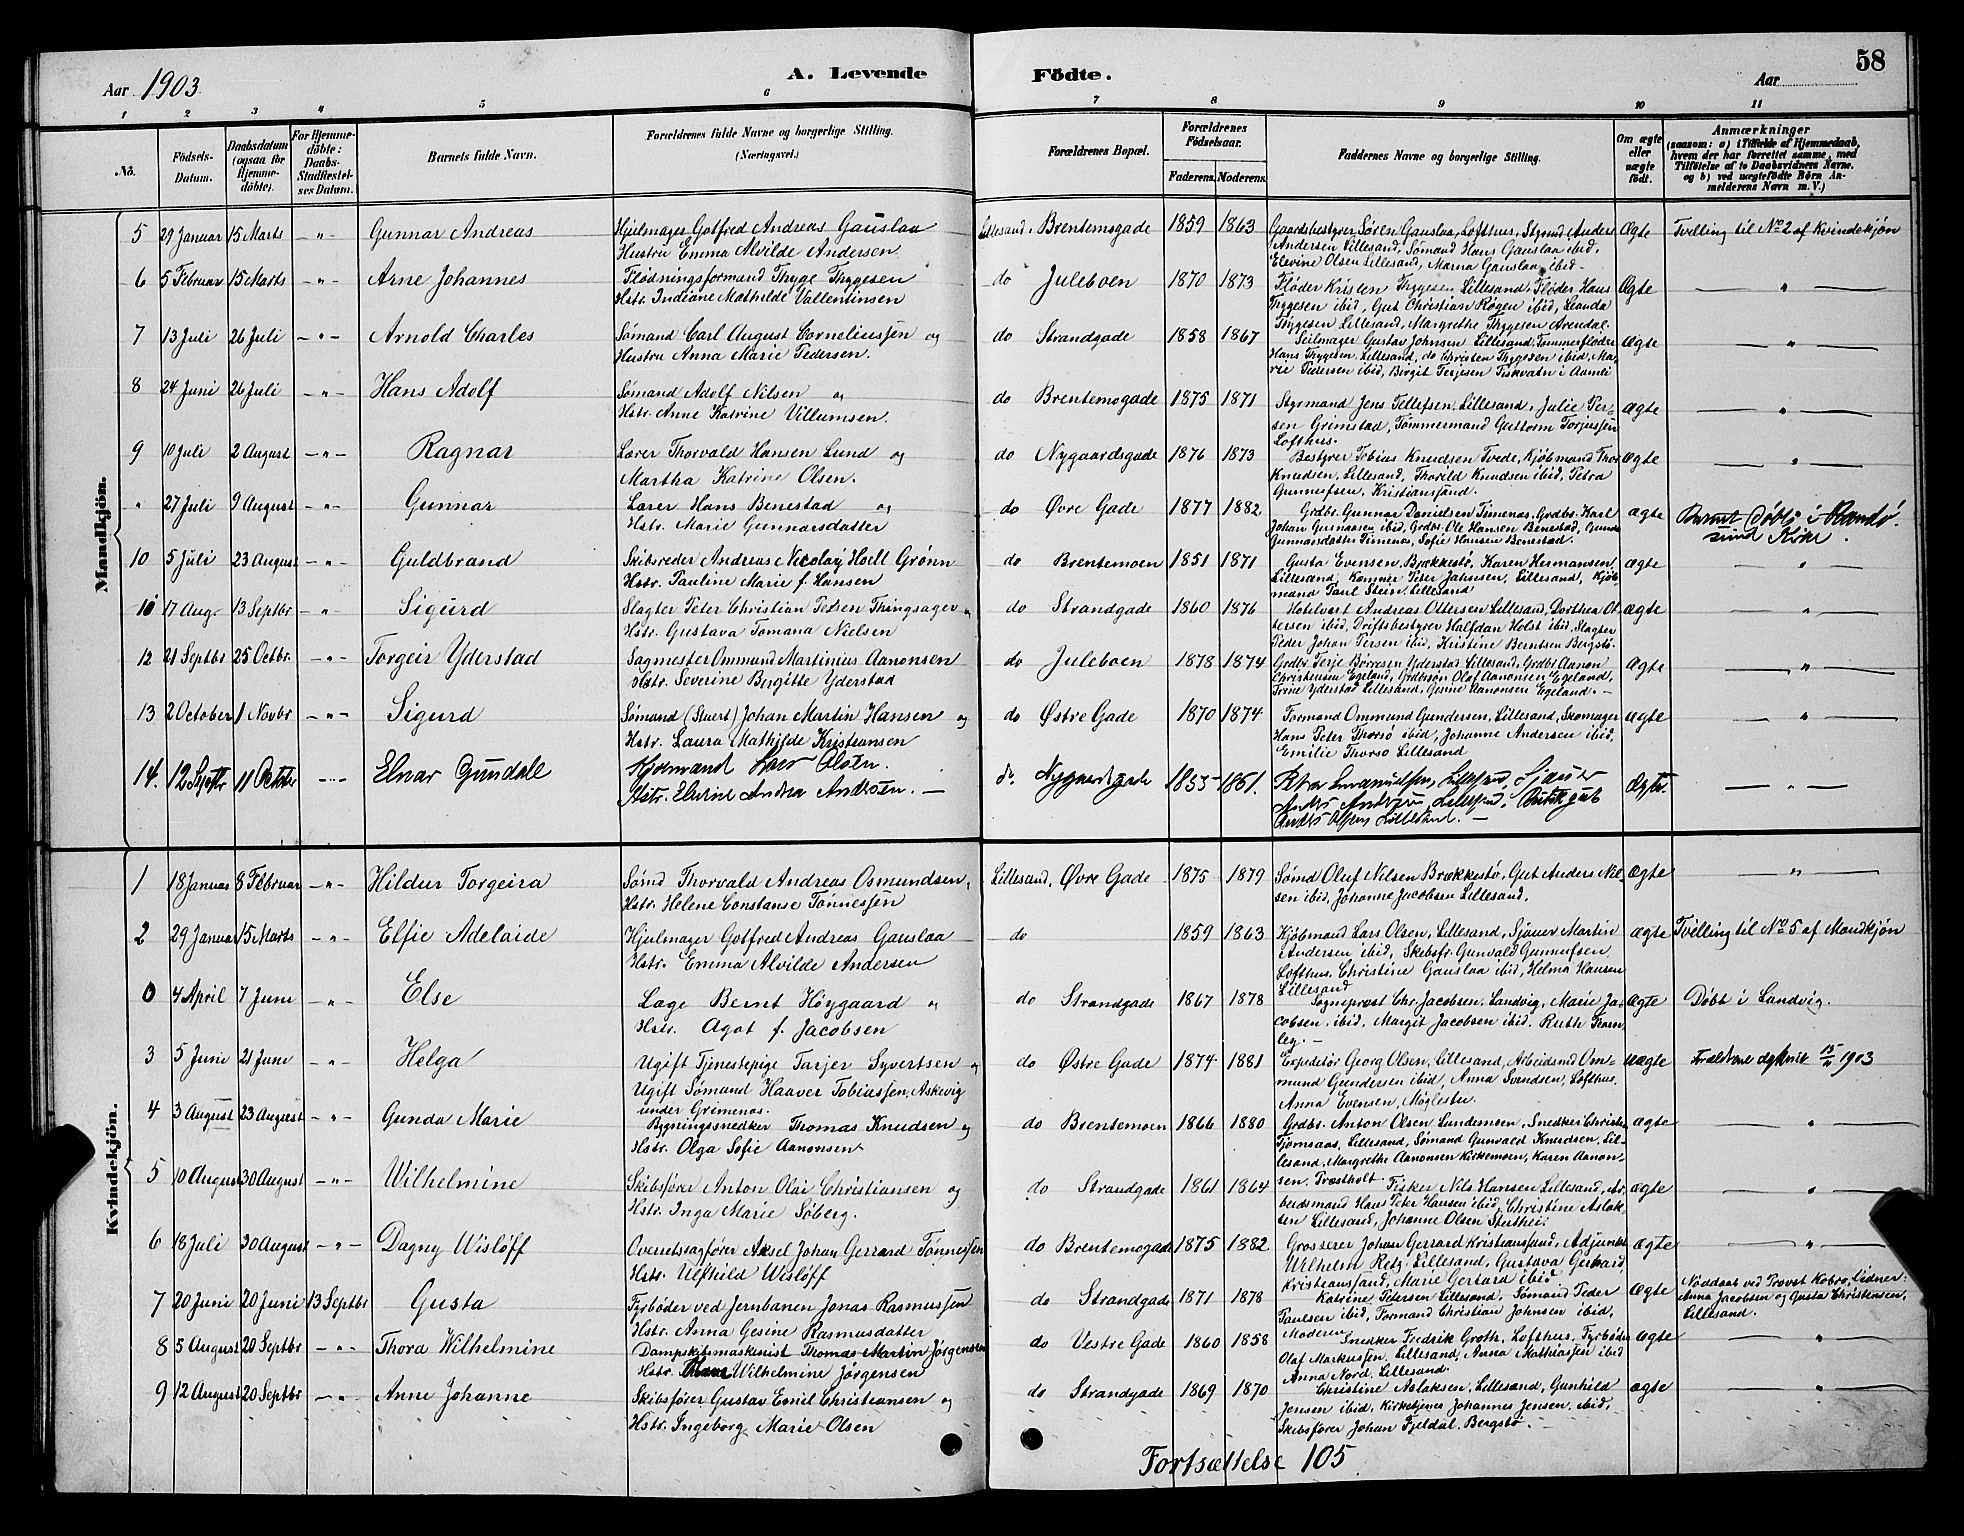 Aar 1903
A. Levende Födte.
Aar
58
1 2 3 4 5 6 7 8 9 10 11
No.
Födsels-Datum.
Daabsdatum (ogsaa for Hjemme-döbte).
For Hjemme-döbte: Daabs-Stadfæstel-ses Datum.
Barnets fulde Navn.
Forældrenes fulde Navne og borgerlige Stilling. (Næringsvei.)
Forældrenes Bopæl.
Forældrenes Födselsaar.
Faderens. Moderens.
Faddernes Navne og borgerlige Stilling.
Om ægte eller uægte födt.
Anmærkninger
(saasom: a) i Tilfælde af Hjemmedaab, hvem der har forrettet samme, med Tilföielse af to Daabsvidners Navne. og b) ved uægtefödte Börn An-melderens Navn m. V.)
Mandkjön.
5 29 Januar 15 Marts -"- Gunnar Andreas
Hjulmager Gotfred Andreas Gauslaa
Hustru Emma Alvilde Andersen
Lillesand. Brentemogade 1859 1863
Gaardsbestyrer Søren Gauslaa, Lofthus, Styrmd Anders
Andersen Lillesand, Sømand Hans Gauslaa ibid,
Elevine Olsen Lillesand, Marna Gauslaa ibid-
Ægte Tvilling til No 2 af Kvindekjøn
6 5 Februar 15 Marts -"- Arne Johannes
Flødningsformand Thyge Thygesen
Hstr. Indiane Mathilde Vallentinsen
do Juleboen 1870 1873
Fløder Kristen Thygesen Lillesand, Fløder Hans
Thygesen ibid, Gut Christian Røgen ibid, Leanda
Thygesen Lillesand, Margrethe Thygesen Arendal.
Ægte "
7 13 Juli 26 Juli -"- Arnold Charles
Sømand Carl August Corneliussen og
Hustru Anna Marie Pedersen.
do Strandgade 1858 1867
Seilmager Gustav Johnsen Lillesand, Tømmerfløder
Hans Thygesen, Lillesand, do Christen Thygesen ibid, Ma-
rie Pedersen ibid, Birgit Terjesen Fiskvatn i Aamli
ægte "
8 24 Juni 26 Juli -"- Hans Adolf
Sømand Adolf Nilsen og
Hstr. Anne Katrine Villumsen.
do Brentemogade 1875 1871
Styrmand Jens Tellefsen Lillesand, Julie Per-
sen Grimstad, Tømmermand Guttorm Torjussen
Lofthus.
ægte "
9 10 Juli 2 August -"- Ragnar
Lærer Thorvald Hansen Lund og
Martha Katrine Olsen.
do Nygaardsgade 1876 1873
Bestyrer Tobias Knudsen Tvede, Kjøbmand Thor
Knudsen, Lillesand, Thorild Knudsen ibid, Petra
Gunnufsen, Kristiansand.
ægte "
" 27 Juli 9 August -"- Gunnar
Lærer Hans Benestad og
Hstr. Marie Gunnarsdatter
do Øvre Gade 1877 1882
Grdbr. Gunnar Danielsen Timenes, Grdbr. Karl
Johan Gunnarsen ibid, Grdbr. Ole Hansen Benestad, Gunda
Gunnarsdatter Timenes, Sofie Hansen Benestad.
ægte Barnet døbt i Randø-
sund Kirke.
10 5 Juli 23 August -"- Guldbrand
Skibsreder Andreas Nicolay Holt Grønn
Hstr. Pauline Marie f. Hansen
do Brentemoen 1851 1871
Gusta Evensen, Brækkestø, Karen Hermansen,
Lillesand, Kemner Peter Jahnsen, Lillesand, Kjøb-
mand Paul Steen, Lillesand
ægte "
10 17 Aug. 13 Septbr -"- Sigurd
Slagter Peter Christian Peders Thingsager og
Hstr. Gustava Tomana Nielsen
do Strandgade 1860 1876
Hotelvert Andreas Ottersen Lillesand, Dorthea Ot-
tersen ibid, Driftsbestyrer Halfdan Holst ibid, Slagter
Peder Johan Persen ibid, Kristine Berntsen Bergstø.
ægte "
12 21 Septbr 25 Octbr. -"- Torgeir Yderstad
Sagmester Ommund Martinius Aanonsen
Hstr. Severine Bergitte Yderstad
do Juleboen 1878 1874
Grdbr. Terje Børresen Yderstad Lillesand, Grdbr Aanon
Christensen Egeland, Grdbrsøn Olaf Aanonsen Egeland,
Trine Yderstad Lillesand, Gesine Aanonsen Egeland.-
ægte "
13 2 October 1 Novbr -"- Sigurd
Sømand (Stuert) Johan Martin Hansen og
Hstr. Laura Mathilde Kristiansen
do Østre Gade 1870 1874
Formand Ommund Gundersen, Lillesand, Skomager
Hans Peter Thorsø ibid, Johanne Andersen ibid,
Emilie Thorsø Lillesand
ægte "
14. 12 Septbr 11 Oktober -"- Elnar Gundall
Kjøbmand Lars Olsen.
Hstr. Elevine Andrea Andersen.
do. Nygaardsgade 1855 1861.
Petra Emanuelsen, Lillesand, Sjøuer
Anders Andersen Lillesand, Butikgut
Anders Olsen Lillesand.-
Ægte. "
Kvindekjön.
1 18 Januar 8 Februar -"- Hildur Torgeira
Sømd Thorvald Andreas Osmundsen,
Hstr. Helene Constanse Tønnessen
Lillesand, Øvre Gade 1875 1879
Sømd Oluf Nilsen Brækkestø, Gut Anders Nil-
sen ibid, Johanne Jacobsen Lillesand.
ægte "
2 29 Januar 15 Marts -"- Elfie Adelaide
Hjulmager Gotfred Andreas Gauslaa
Hstr. Emma Alvilde Andersen
do 1859 1863
Kjøbmand Lars Olsen, Lillesand, Sjøuer Martin
Andersen ibid, Skibsfr. Gunvald Gunnufsen,
Lofthus, Christine Gauslaa ibid, Helma Hansen
Lillesand
ægte Tvilling til No 5 af Mandkjøn
0 4 April 7 Juni -"- Else
Læge Bernt Høygaard "
Hstr. Agot f. Jacobsen
do Strandgade 1867 1878
Sogneprest Chr. Jacobsen, Landvig, Marie Ja-
cobsen, ibid, Margit Jacobsen ibid, Ruth
ægte Døbt i Landvig.
3 5 Juni 21 Juni -"- Helga
Ugift Tjenestepige Tarjer Syvertsen og
Ugift Sømand Haaver Tobiassen, Askevig
under Grimenæs.
do Østre Gade 1874 1881
Expeditør Georg Olsen, Lillesand, Arbeidsmd Om-
mund Gundersen ibid, Anna Svendsen, Lofthus,
Anna Evensen, Møglestu.
uægte Forældrene 15/11 1903
4 3 August 23 August -"- Gunda Marie
Bygningssnedker Thomas Knudsen og
Hstr. Olga Sofie Aanonsen
do Brentemoen 1866 1880
Grdbr. Anton Olsen Lundemoen, Snedker Christs
Tjømsaas, Lillesand, Sømand Gunvald Knudsen, Lil-
lesand, Margrethe Aanonsen Kirkemoen, Karen Aanon-
sen, Træstholt.
ægte "
5 10 August 30 August -"- Wilhelmine
Skibsfører Anton Olai Christiansen og
Hstr. Inga Marie Søberg.
do Strandgade 1861 1864
Fisker Nils Hansen Lillesand, Ar-
beidsmand Hans Peter Hansen ibid, Christine Aslak-
sen Lillesand, Johanne Olsen Stertheii
ægte "
6 18 Juli 30 August -"- Dagny Wisløff
Overretssagfører Aksel Johan Gerrard Tønnessen
Hstr. Ulfhild Wisløff
do Brentemogade 1875 1882
Grosserer Johan Gerrard Kristiansand, Adjunkt
Wilhelm Lillesand, Gustava Gerrard
Kristiansand, Marie Gerrard ibid
ægte "
7 20 Juni 20 Juni 13 Septbr Gusta
Fyrbøder ved Jernbanen Jonas Rasmussen
Hstr. Anna Gesine Rasmusdatter
do Strandgade 1871 1878
Katrine Petersen Lillesand, Sømand Peder
Paulsen ibid, Formand Christian Johnsen ibid,
Moderen
ægte Nøddaab ved Provst Kobro, Vidner:
Anna Jacobsen og Gusta Christensen,
Lillesand.
8 5 August 20 Septbr -"- Thora Wilhelmine
Dampskibsmaskinist Thomas Martin Jørgensen
Hstr. Wilhelmine Jørgensen
do Vestre Gade 1860 1858
Snedker Fredrik Groth, Lofthus, Fyrbøder
Olaf Markussen, Lillesand, Anna Mathiassen ibid
Anna Nord, Lillesand
ægte "
9 12 August 20 Septbr -"- Anne Johanne
Skibsfører Gustav Emil Christiansen og
Hstr. Ingeborg Marie Olsen
do Strandgade 1869 1870
Christine Aslaksen, Lillesand, Gunhild
Jensen ibid, Kirketjener Johannes Jensen, ibid,
Skibsfører Johan Fjeldal, Bergstø.
ægte "
Fortsættelse 105